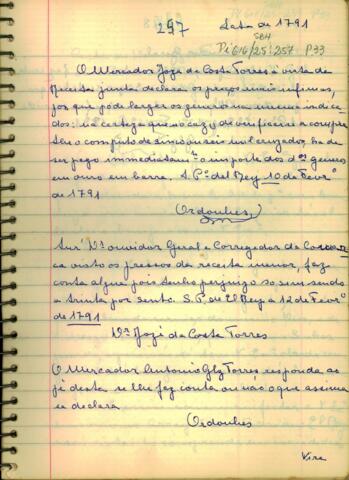 297 Data de 1791
SBH
Di 616/25:257 P.33
O Mercador Joze da Costa Torres á vista da
Receita junta declara os preços mais infimos,
por que póde largar os generos na mesma indica-
dos: na certeza que no cazo de verificar a compra
seu o computo de cinco ou seis mil cruzados, ha de
ser pago immediatamte o importe dos dos generos
em ouro em barra. S. Po del Rey 10 de Fevro
de 1791
Ordonhes
Snr. Dr. ouvidor Geral e Corregedor da Comar-
ca visto os pressos da receita menor, faz
conta algua pois tenho perjuizo so sim sendo
a trinta por sento. S. P. de El Rey a 12 de Fevro
de 1791
De Jozé da Costa Torres
O Mercador Antonio Glz Torres responda ao
pé desta se lhe faz conta ou não o que assima
se declara
Ordonhes
Vire